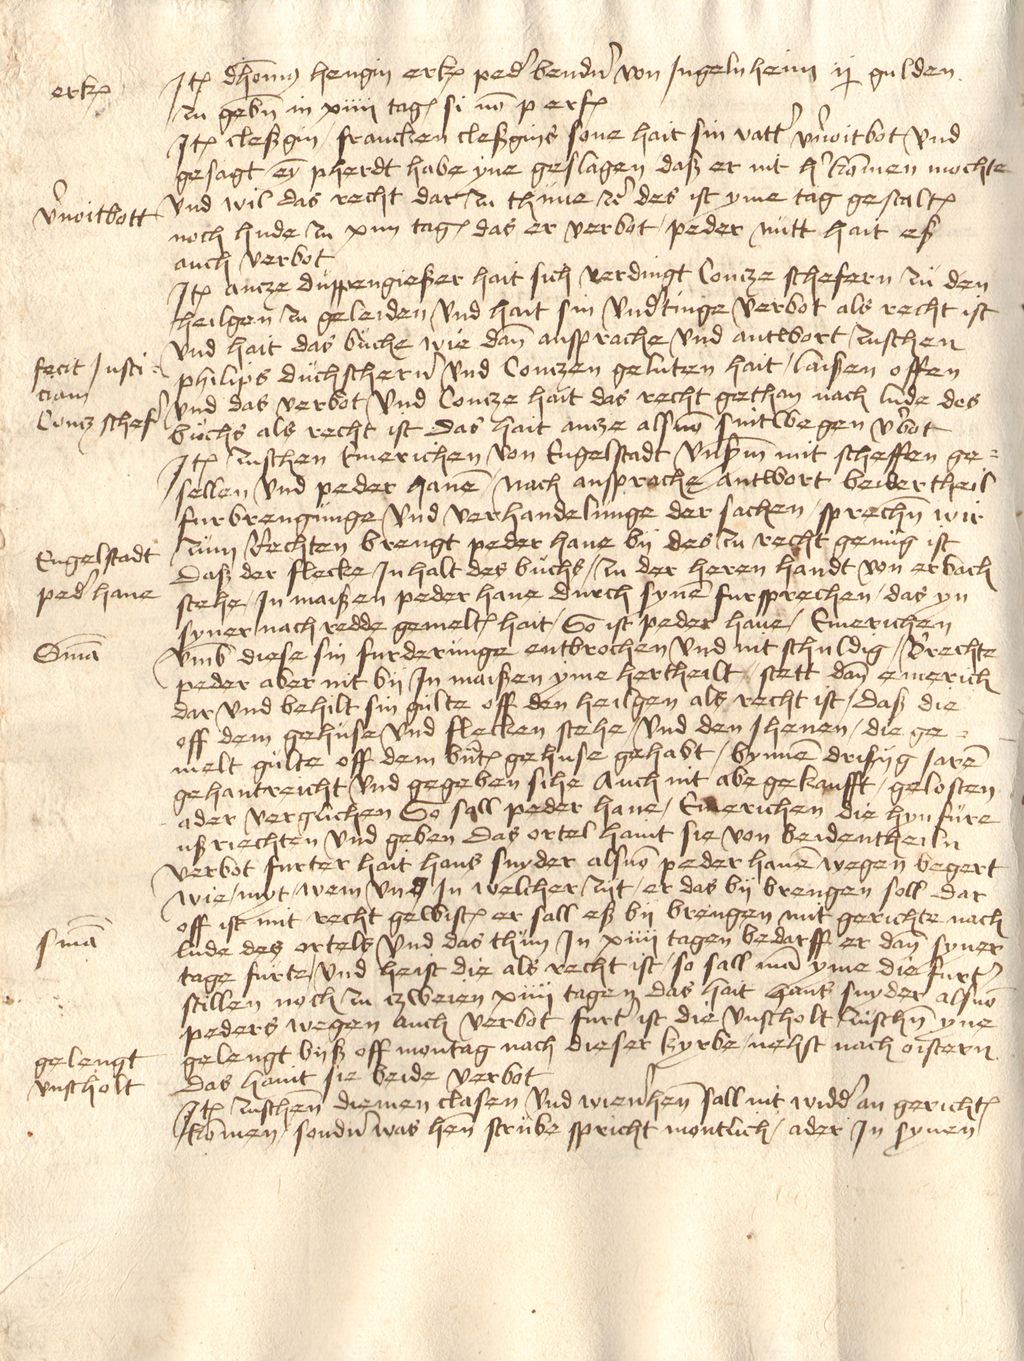 erk
Jt dhom9 hengin erk ped' bend'n von Jngelnheim ij gulden
zu gebn in xiiii tag si no p erf
Jt cleßgin francken cleßgins sone hait sin vatt' v'noitbot und
gesagt ey pherdt habe yne geslagen daß er nit h' komen mochte
v'noitbott
und wil das recht dar zu thune Al' des ist yme tag gestalt
noch hude zu xiiii tag das er verbot peder nutt hait eß
auch verbot
Jt ancze duppengießer hait sich verdingt Concze schefern zu den
heilgen zu geleiden und hait sin undtinge verbot als recht ist
und hait das buche wie dan ansprache und antwort zuschen
fecit Justi
ciam
Concz schef'
philips duchschern und Conczen geluten hait laißen offen
und das verbot und Concze hait das recht gethan nach lude des
buchs als recht ist das hait ancze als von sintwegen v'bot
Jt zuschen Emerichen von Engelstadt unßm mit scheffen ge=
sellen und peder hanen nach ansprache antwort beidertheil
furbrengunge und verhandelunge der sachen sprechn wir
Engelstadt
ped' hane
zum Rechten brengt peder hane bij des zu recht genug ist
Daß der flecke Jnhalt des buchs zu der heren handt von erbach
stehe Jn maißen peder hane durch synen fursprechen das yn
syner nach redde gemelt hait So ist peder hane Emerichen
Sma
umb diese sin furderunge entbrochen und nit schuldig Brechte
peder aber nit bij Jn maißen yme hertheilt stett dan emerich
dar und behilt sin gulte off den heilgen als recht ist daß die
off dem gehuse und flecken stehe und den Jhenen die ge=
melt gulte off dem but gehuse gehabt bynnen drißig jaren
gehantreicht und gegeben sihe Auch nit abegekaufft gelosten
ader verglichen So sall peder hane Emerichen die hynfure
ußriechten und geben das ortel hant sie von beidentheiln
verbot furter hait hans snyder als von peder hanen wegen begert
wie mit wem und Jn welcher zijt er das bij brengen soll dar
off ist mit recht gewist er sall eß bij brengen mit gerichte nach
sma
lude des ortels und das thun Jn xiiii tagen bedarff er dan syner
tage furte und heist die als recht ist so sall man yme die furt'
stillen noch zu zweien xiiii tagen das hait hans snyder als von
peders wegen auch verbot furt' ist die unscholt zuschn yne
gelengt
unscholt
gelengt bijß off montag nach dieser kyrbe nehst nach oistern
das hant sie beide verbot
Jt zuschen diemen clasen und wienhen sall nit widd' an gericht
komen sond'n was hen strube spricht montlich ader Jn synen